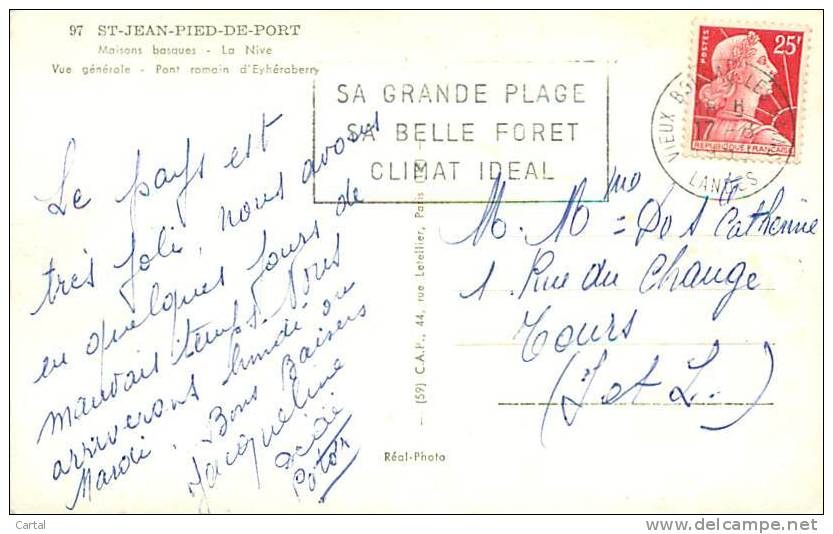 97 ST-JEAN-PIED-DE-PORT
Maisons basques - La Nive
Vue générale - Pont romain d'Eyhéraberry
SA GRANDE PLAGE
SA BELLE FORET
CLIMAT IDEAL
POSTES
25F
REPUBLIQUE FRANÇAISE
VIEUX
17
LANDES
Le pays est
très joli, nous avons
eu quelques jours de
mauvais temps. Nous
arriverons lundi ou
Mardi. Bons Baisers
Jacqueline
Dédé
(59) C.A.P., 44, rue Letellier, Paris
Réal-Photo
M. Mme
Catherine
1. Rue du Change
Tours
(I et L.)
Cartal
www.delcampe.net